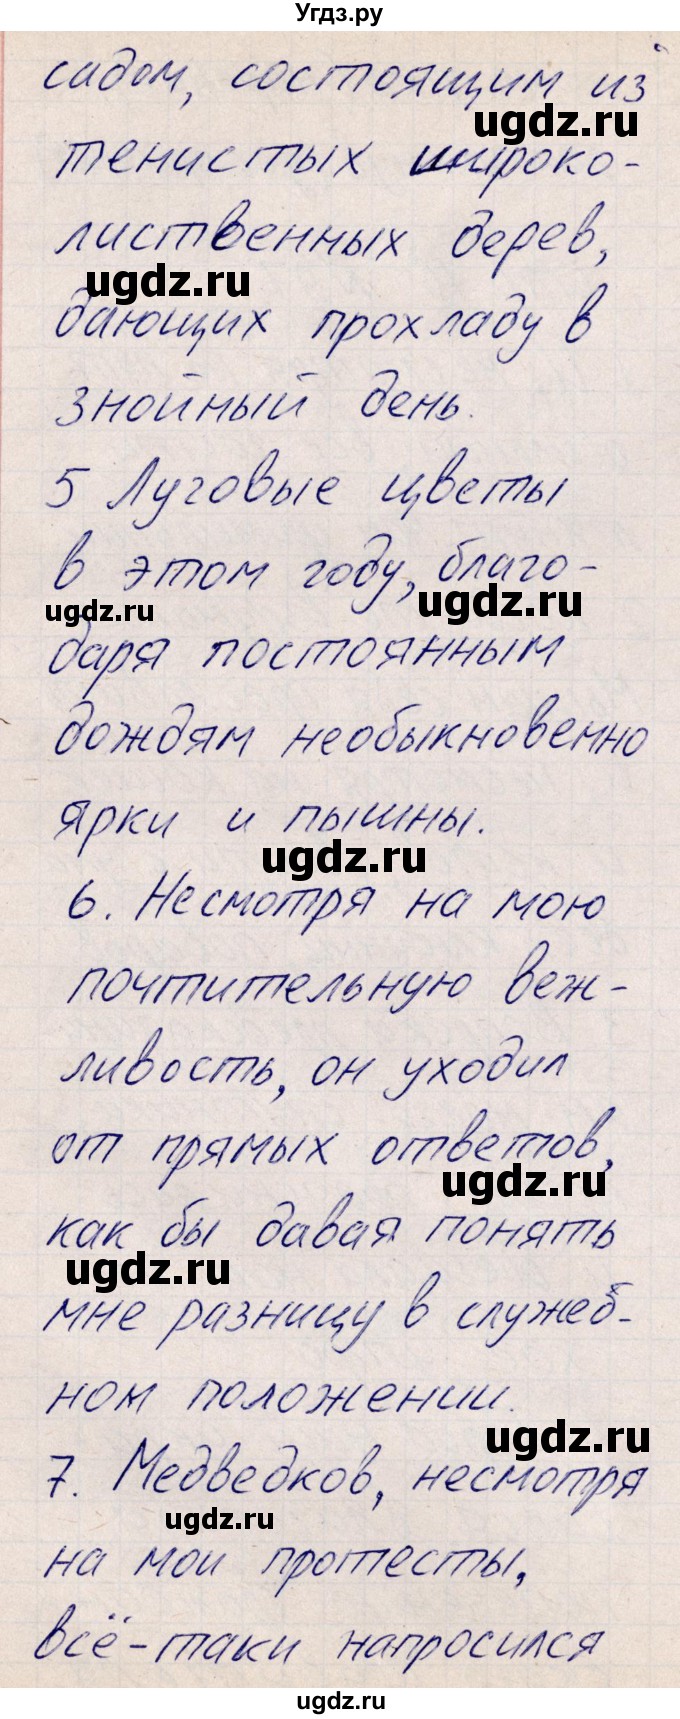 Угдз.ру
садом, состоящим из
ugdz.ru
тенистых широко-
лиственных дерев,
ugdz.ru
дающих прохладу в
знойный день.
5 Луговые цветы
в этом году, благо-
ugdz.ru
ugdz.ru
даря постоянным
дождям необыкновенно
ярки и пышны.
ugdz.ru
6. Несмотря на мою
почтительную веж-
ливость, он уходил
от прямых ответов,
ugdz.ru
как бы давая понять
ugdz.ru
мне разницу в служеб-
ном положении.
ugdz.ru
7. Медведков, несмотря
ugdz.ru
на мои протесты,
всё-таки напросился
ugdz.ru